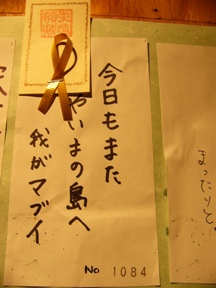 今日もまた
やいまの島へ
我がマブイ
No 1084
まったりと。